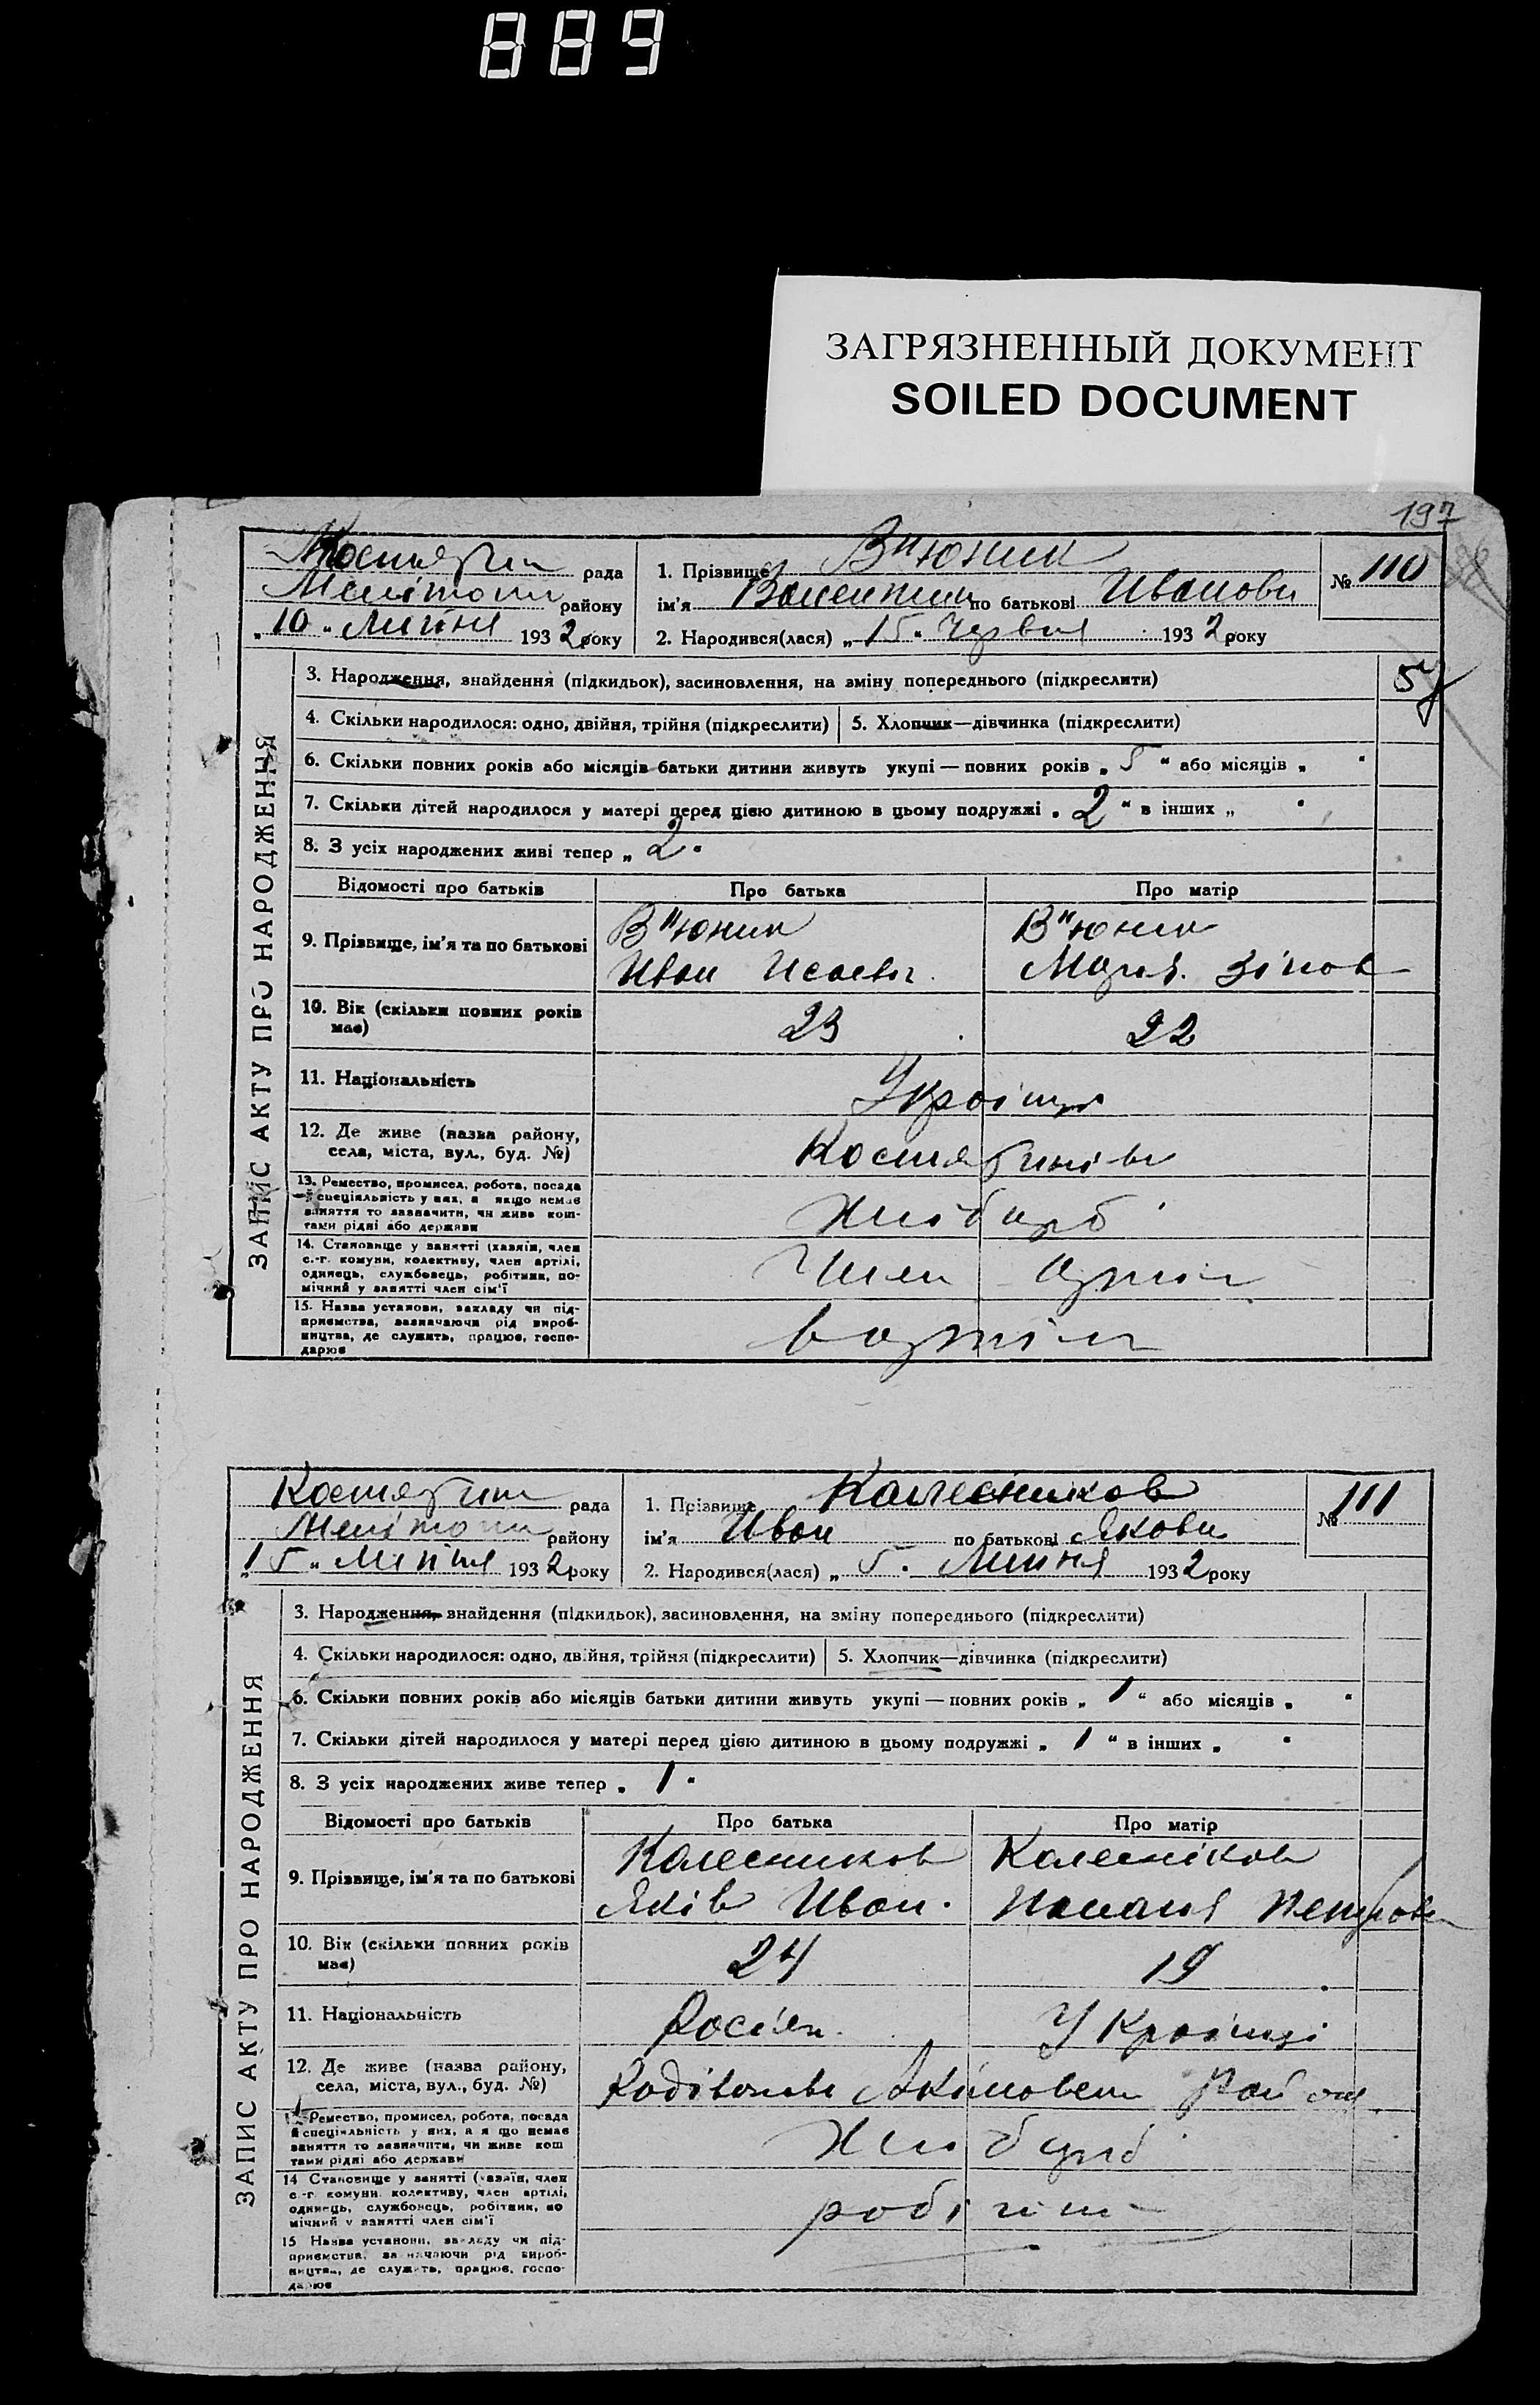 889
ЗАГРЯЗНЕННЫЙ ДОКУМЕНТ
SOILED DOCUMENT
197
рада
Мелітоп району
„10" Липня 1932 року
1. Прізвище В"юник
ім'я Валентин по батькові Иванови
2. Народився(лася) „15" Червня 1932 року
№ 110
ЗАПИС АКТУ ПРО НАРОДЖЕННЯ
3. Народження, знайдення (підкидьок), засиновлення, на зміну попереднього (підкреслити)
5
4. Скільки народилося: одно, двійня, трійня (підкреслити)
5. Хлопчик—дівчинка (підкреслити)
6. Скільки повних років або місяців батьки дитини живуть укупі — повних років „5" або місяців „ "
7. Скільки дітей народилося у матері перед цією дитиною в цьому подружжі „2" в інших „ "
8. З усіх народжених живі тепер „2"
Відомості про батьків
Про батька
Про матір
9. Прізвище, ім'я та по батькові
В"юник
Иван Исаев
В"юник
Марія Зінов
10. Вік (скільки повних років
має)
23
22
11. Національність
Українці
12. Де живе (назва району,
села, міста, вул., буд. №)
13. Ремество, промисел, робота, посада
й спеціяльність у них, а якщо немає
заняття то зазначити, чи живе кош-
тами рідні або держави
Хліборб
14. Становище у занятті (хазяїн, член
с.-г. комуни, колективу, член артілі,
одинець, службовець, робітник, по-
мічний у занятті член сім'ї
Член артіл
15. Назва установи, закладу чи під-
приємства, зазначаючи рід вироб-
ництва, де служить, працює, госпо-
дарює
в артіл
рада
Мелітоп району
„15" Липня 1932 року
1. Прізвище Колесников
ім'я Иван по батькові Якови
2. Народився(лася) „5" Липня 1932 року
№ 111
ЗАПИС АКТУ ПРО НАРОДЖЕННЯ
3. Народження, знайдення (підкидьок), засиновлення, на зміну попереднього (підкреслити)
4. Скільки народилося: одно, двійня, трійня (підкреслити)
5. Хлопчик—дівчинка (підкреслити)
6. Скільки повних років або місяців батьки дитини живуть укупі — повних років „1" або місяців „ "
7. Скільки дітей народилося у матері перед цією дитиною в цьому подружжі „1" в інших „ "
8. З усіх народжених живе тепер „1"
Відомості про батьків
Про батька
Про матір
9. Прізвище, ім'я та по батькові
Колесников
Яків Иван.
Колесніков
Петров
10. Вік (скільки повних років
має)
24
19
11. Національність
Росіян.
Українці
12. Де живе (назва району,
села, міста, вул., буд. №)
Акімовськ Район
Ремество, промисел, робота, посада
й спеціяльність у них, а якщо немає
заняття то зазначити, чи живе кош
тами рідні або держави
Хліборб
14 Становище у занятті (хазяїн, член
с.-г. комуни, колективу, член артілі,
одинець, службовець, робітник, по
мічний у занятті член сім'ї
робітни
15 Назва установи, закладу чи під-
приємства, зазначаючи рід вироб-
ництва, де служить, працює, госпо-
дарює